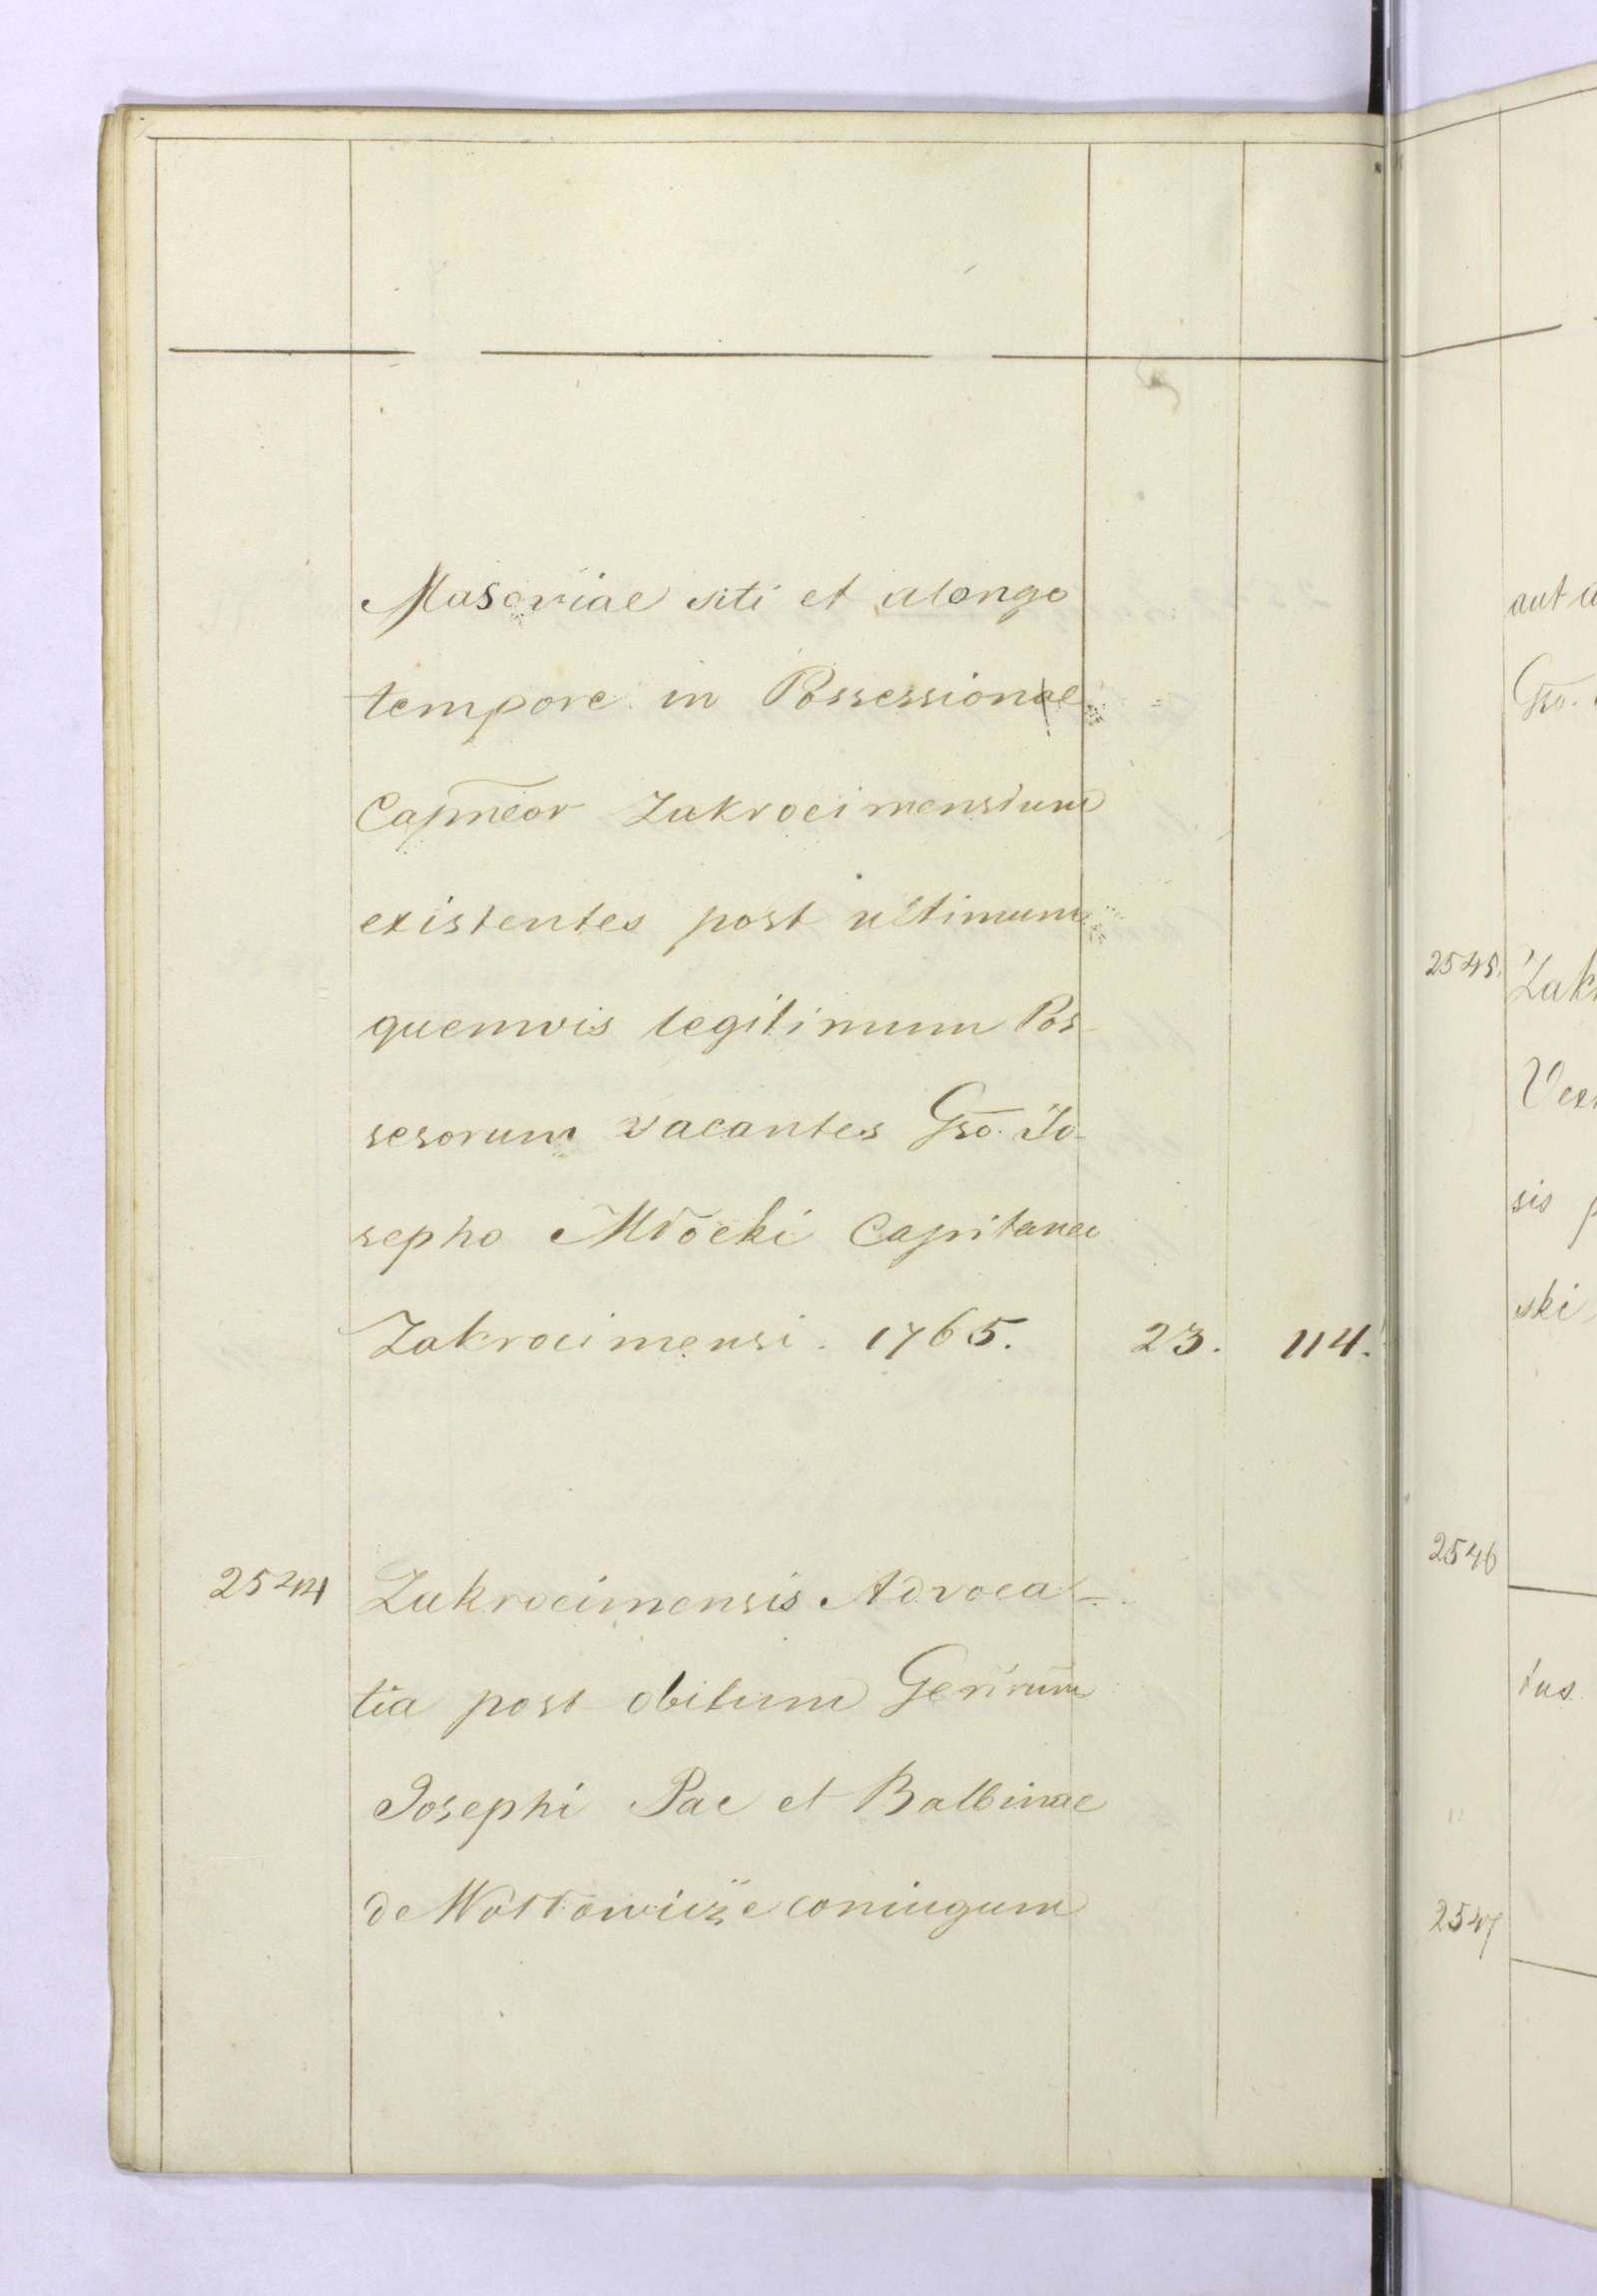 Masoviae siti et alongo
tempore in Possessione
Capneor Zakrocimensium
existentes post ultimum
quemvis legitimum Pos-
sesorum vacantes Gso. Jo-
sepho Młocki Capitaneo
Zakrocimensi. 1765. 23. 114.
2544 Zakrocimensis Advoca-
tia post obitum Gennrum
Josephi Pac et Balbinae
de Wołłowicze coniugum
aut a
Gso.
2545. Zak
Vex
sis p
ski
2546
tus
2547